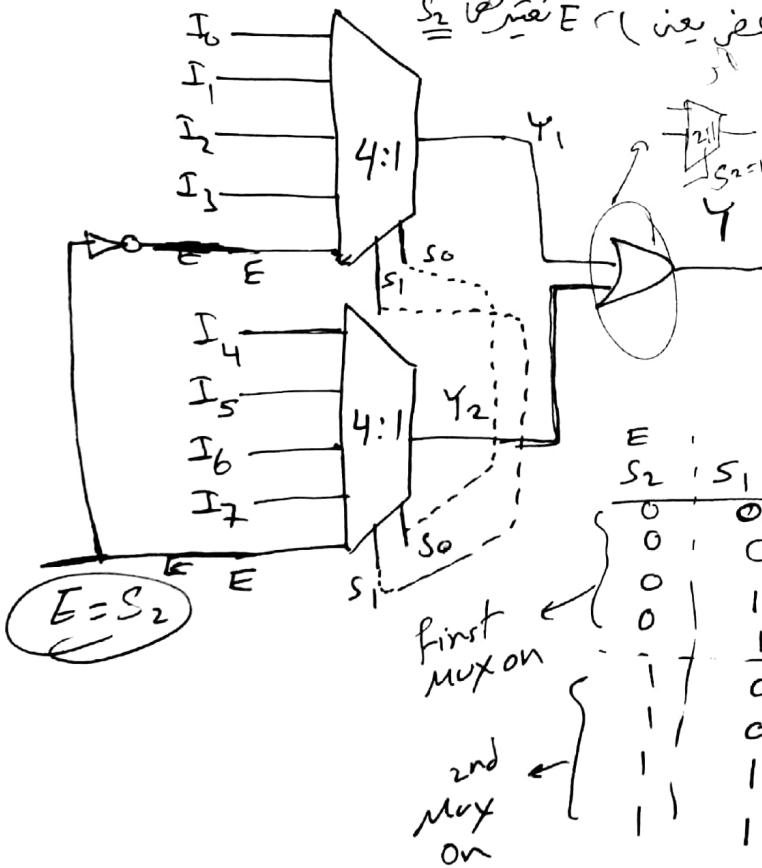 بعض يعني (- E نعتبرها S₂
I₀
I₁
I₂
I₃
4:1
Y₁
2:1
S₂=1
Y
E
E
S₁
S₀
I₄
I₅
I₆
I₇
4:1
Y₂
S₁
S₀
E
E
E = S₂
E
S₂ S₁
0 0
0 0
0 1
0 1
1 0
1 0
1 1
1 1
first
MUX on
2nd
MUX
on